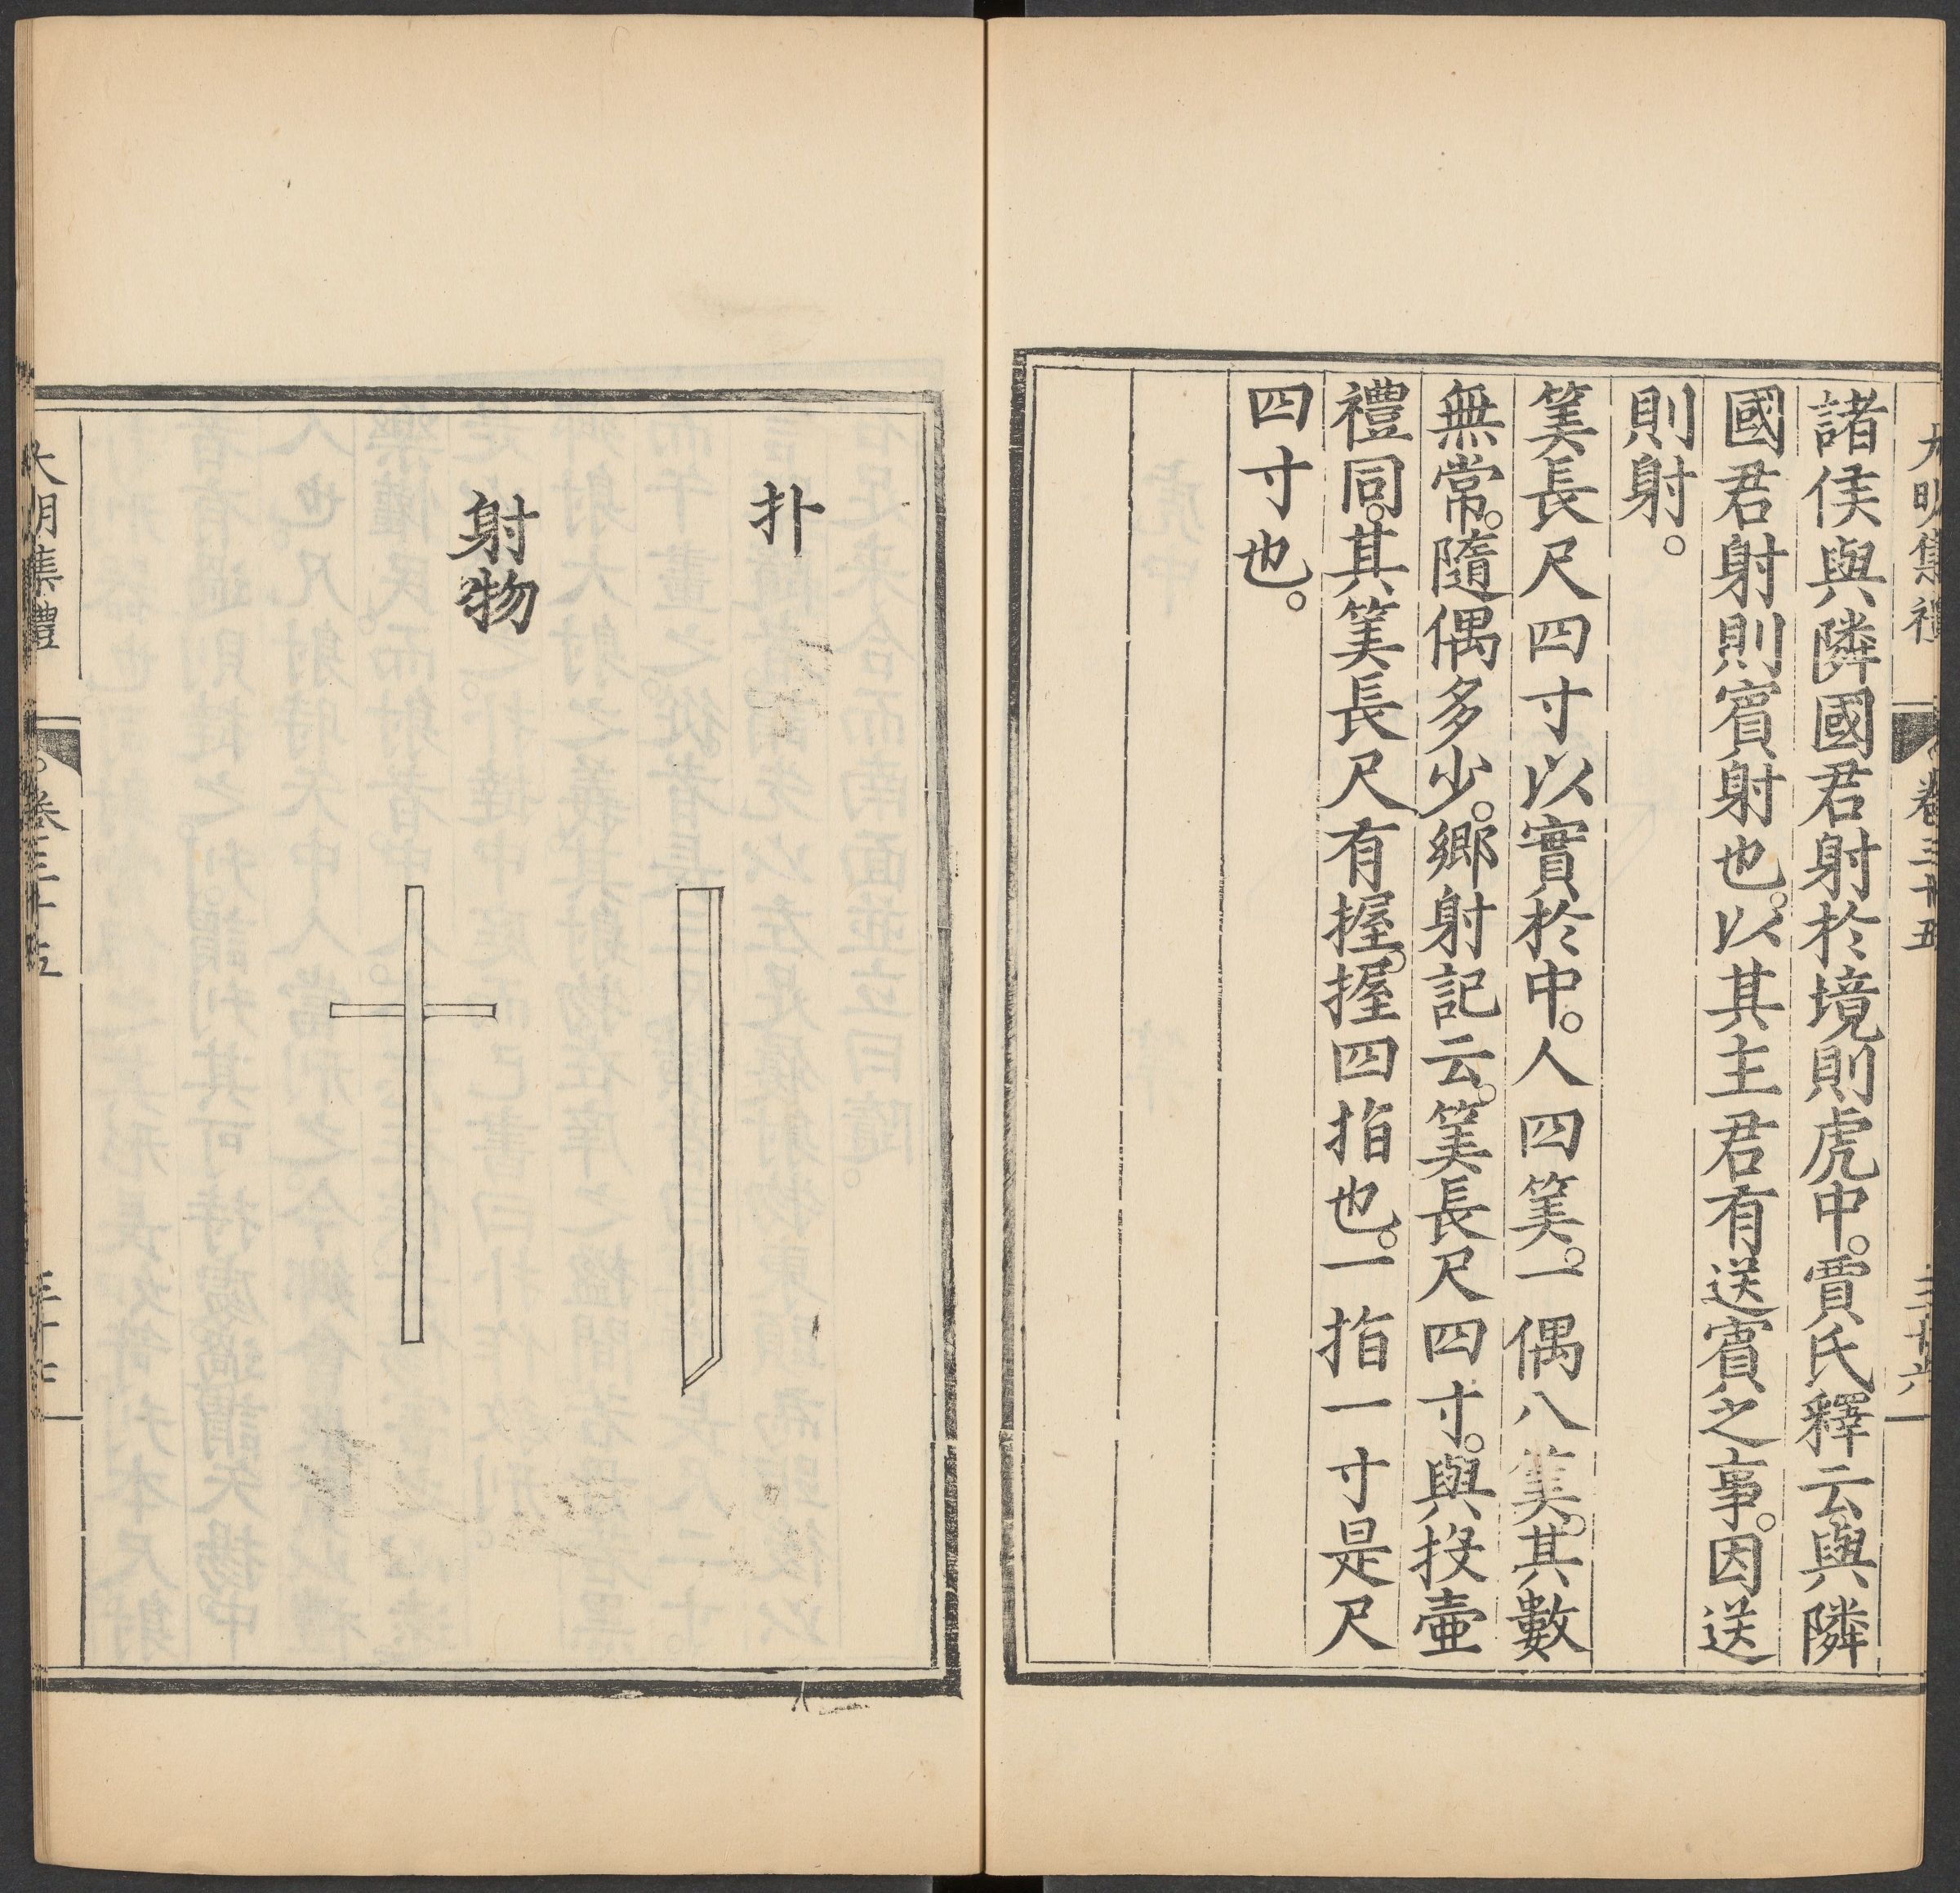 大明集禮
卷三十五
三十六
諸侯與隣國君射於境則虎中。賈氏釋云與隣
國君射則賓射也。以其主君有送賓之事。因送
則射。
筭長尺四寸以實於中。人四筭。一偶八筭。其數
無常。隨偶多少。鄉射記云。筭長尺四寸。與投壷
禮同。其筭長尺有握。握四指也。一指一寸是尺
四寸也。
扑
射物
大明集禮
卷三十五
三十七